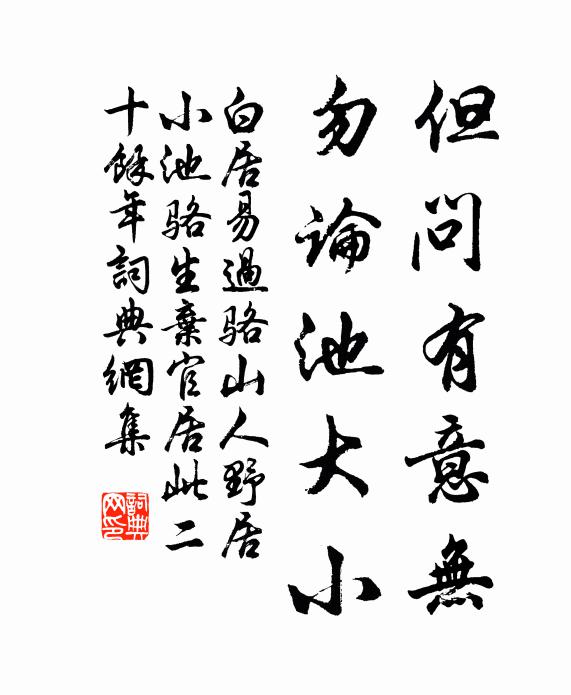 但問有意無
勿論池大小
白居易過骆山人野居
小池骆生棄官居此二
十餘年詞典網集
詞典网印